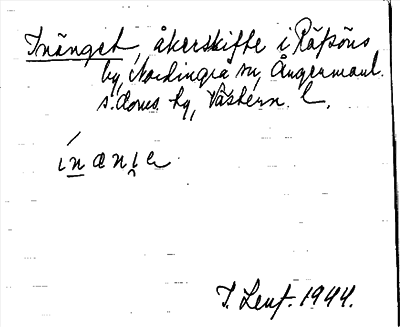 Inänget, åkerskifte i Räfsöns
by, Nordingrå sn, Ångermanl.
s. doms hg, Västern. l.
inænʒe
T. Leuf. 1944.